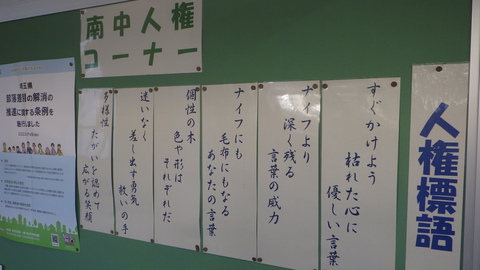 南中人権
コーナー
人権標語
すぐかけよう
枯れた心に
優しい言葉
ナイフより
深く残る
言葉の威力
ナイフにも
毛布にもなる
あなたの言葉
個性の木
色や形は
それぞれだ
迷いなく
差し出す勇気
救いの手
多様性
たがいを認めて
広がる笑顔
埼玉県
部落差別の解消の
推進に関する条例を
施行しました